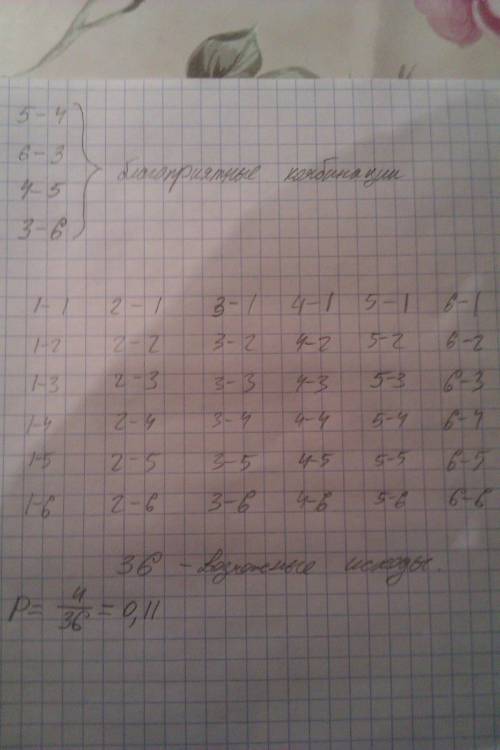 5-4
6-3
4-5
3-6
благоприятные комбинации
1-1 2-1 3-1 4-1 5-1 6-1
1-2 2-2 3-2 4-2 5-2 6-2
1-3 2-3 3-3 4-3 5-3 6-3
1-4 2-4 3-4 4-4 5-4 6-4
1-5 2-5 3-5 4-5 5-5 6-5
1-6 2-6 3-6 4-6 5-6 6-6
36 - возможные исходы.
P = 4/36 = 0,11